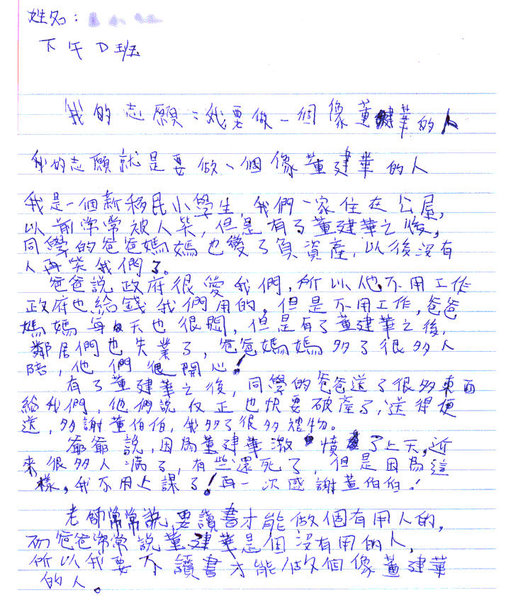 姓名：
下午D班
我的志願：我要做一個像董建華的人
我的志願就是要做一個像董建華的人
我是一個新移民小學生，我們一家住在公屋，
以前常常被人笑，但是有了董建華之後，
同學的爸爸媽媽也變了負資產，以後沒有
人再笑我們了。
爸爸說，政府很愛我們，所以他不用工作
政府也給錢我們用的，但是不用工作，爸爸
媽媽每天也很悶，但是有了董建華之後，
鄰居們也失業了，爸爸媽媽多了很多人
陪，他們很開心！
有了董建華之後，同學的爸爸送了很多東西
給我們，他們說反正也快要破產了，送得便
送，多謝董伯伯，我多了很多禮物。
爺爺說，因為董建華激憤了上天，近
來很多人病了，有些還死了，但是因為這
樣，我不用上課了！再一次感謝董伯伯！
老師常常說，要讀書才能做個有用人的，
而爸爸常常說董建華是個沒有用的人，
所以我要不讀書才能做個像董建華
的人。